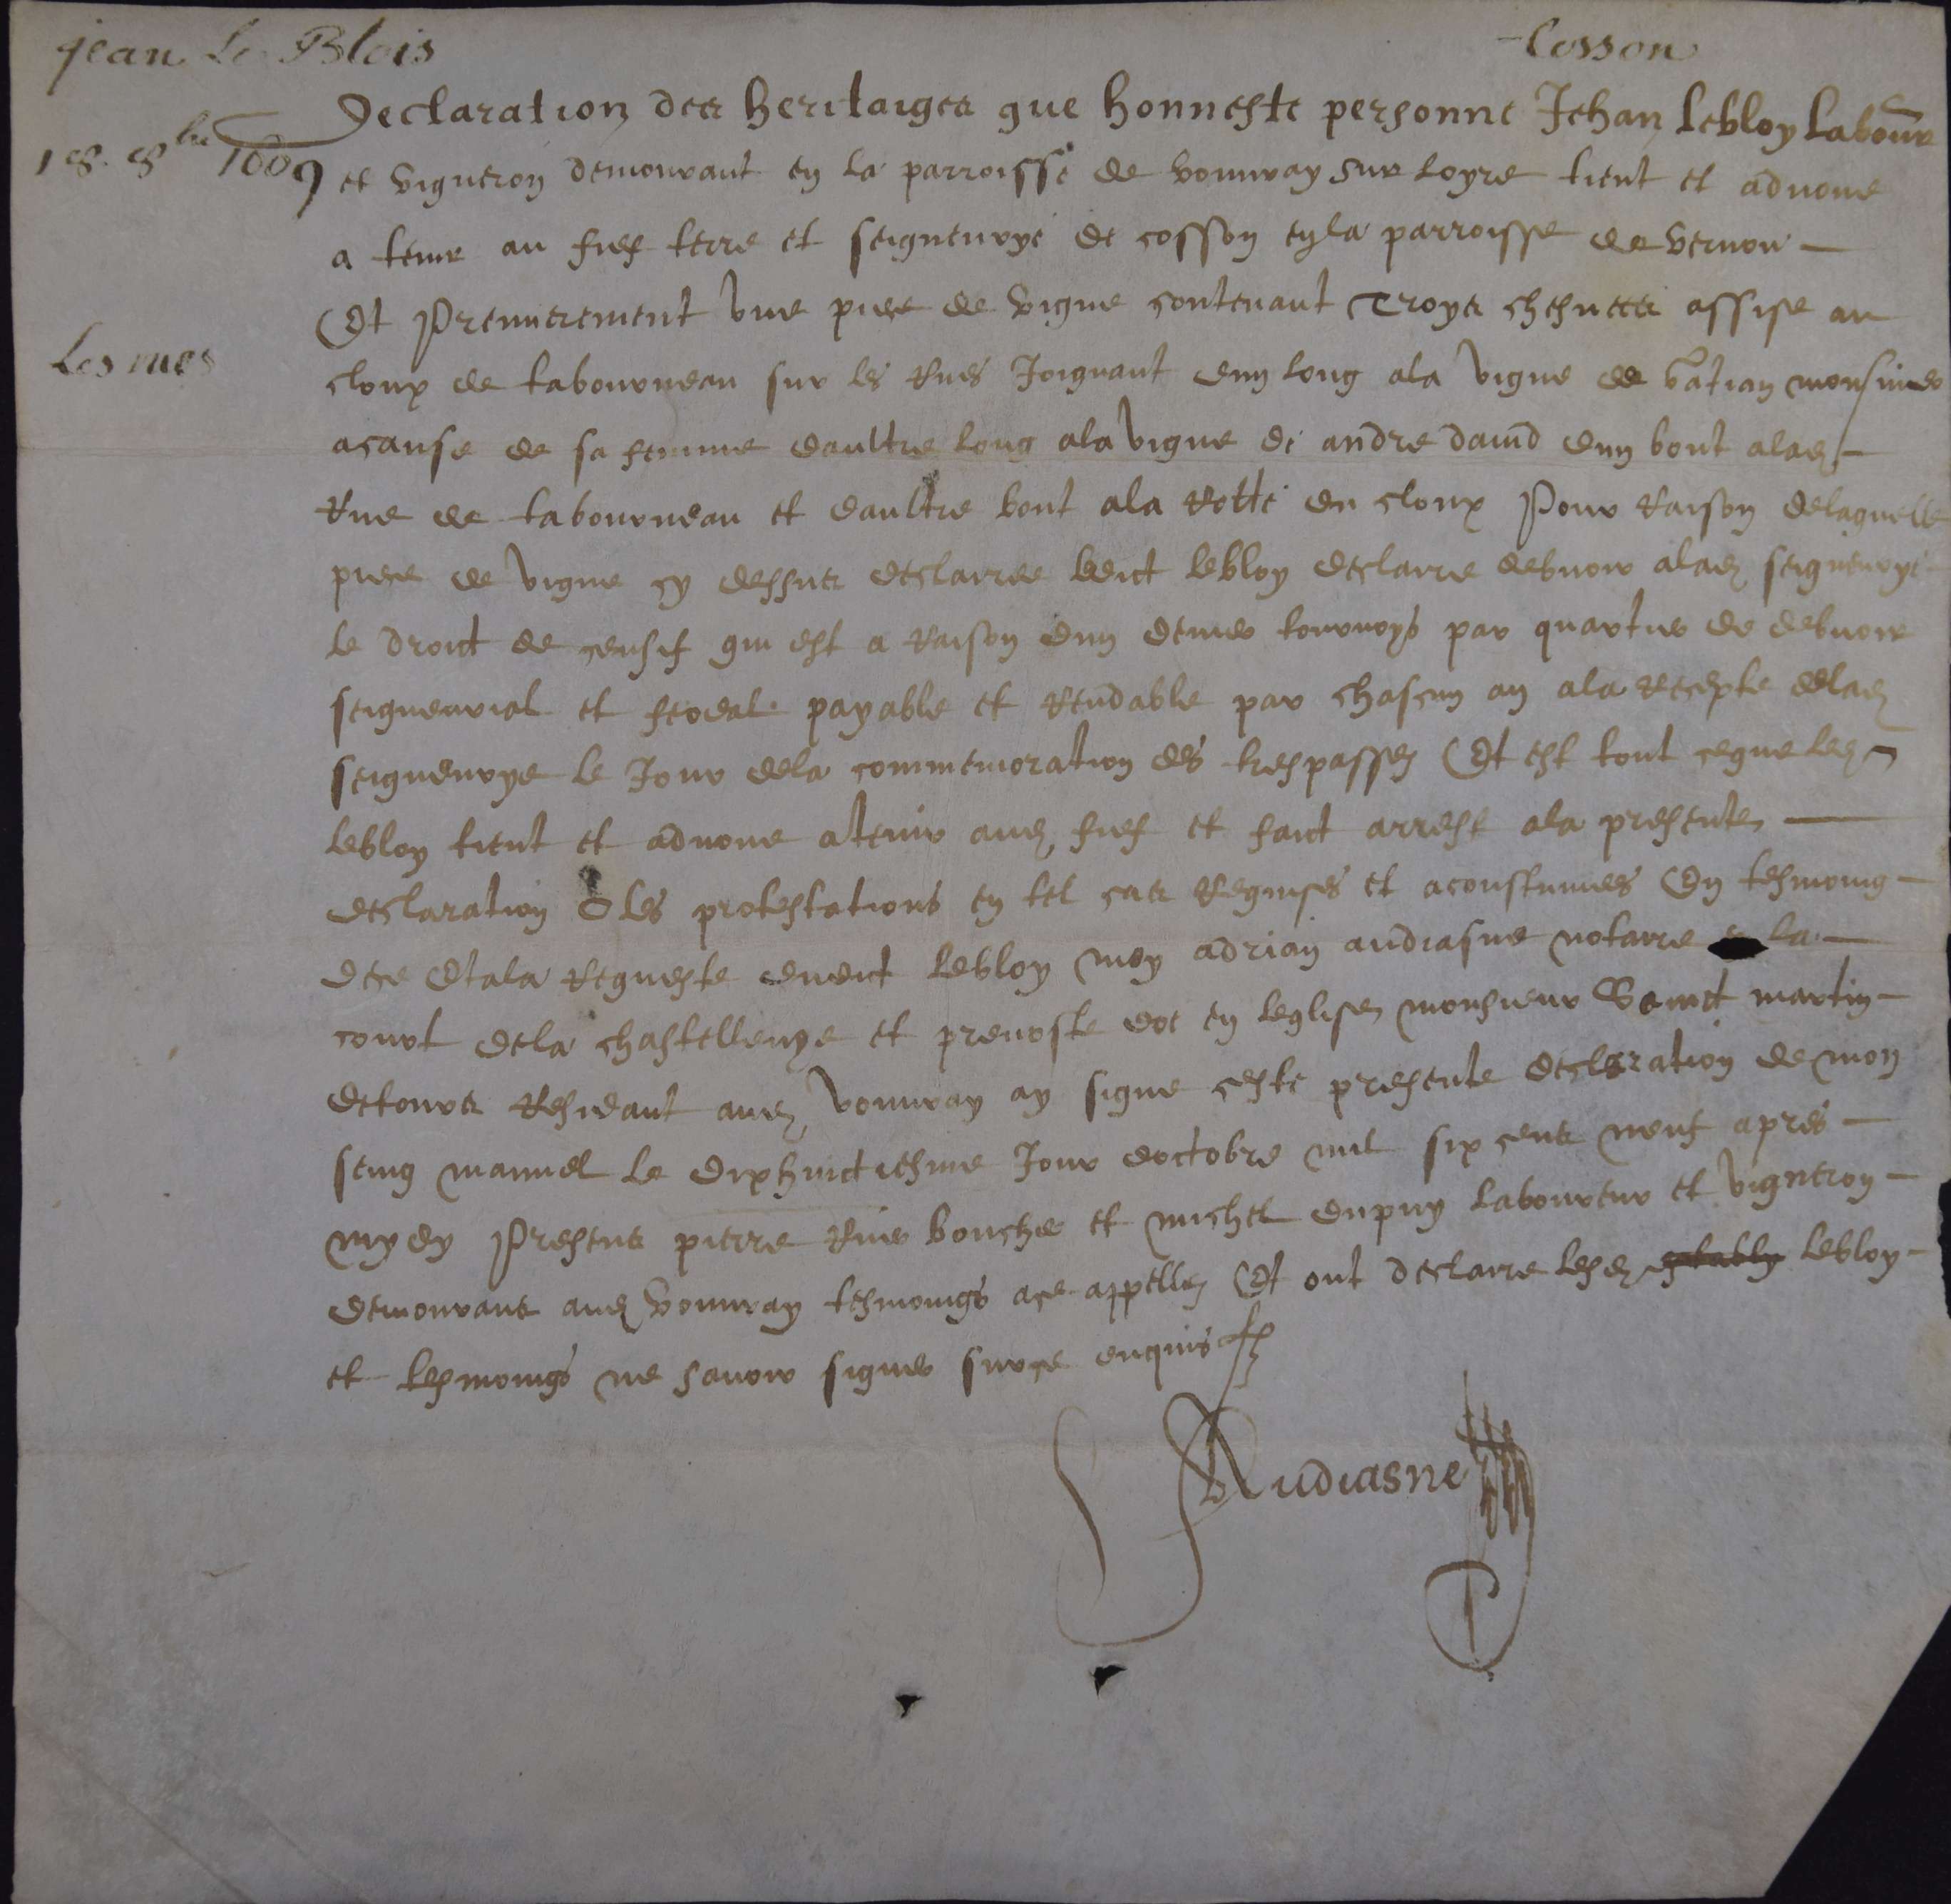 jean Le Blois
Cosson
18. 8bre 1609
Declaration des heritaiges que honneste personne Jehan Lebloy Labour
et vigneron demourant en la parroisse de vouuray sur loyre tient et aduoue
a tenir au fief terre et seigneurye de cosson en la parroisse de vernou
Et Premierement vne piece de vigne contenant Troys chesnees assise au
Les rues
cloux de tabourneau sur les Rues Joignant dun long ala vigne de
acause de sa femme daultre long ala vigne de andre dauid dun bout alad
Rue de tabourneau et daultre bout ala Rotte du cloux Pour Raison delaquelle
piece de vigne cy dessus declairee ledict lebloy declaire debuoir alad seigneurye
le droict de censif qui est a Raison dun denier tournoys par quartier de debuoir
seigneurial et feodal payable et Rendable par chascun an ala Recepte delad
seigneurye le Jour dela commemoration des trespassez Et est tout ceque led
lebloy tient et aduoue atenir aud fief et faict arrest ala presente
declaration O les protestations en tel cas Requises et acoustumees En tesmoing
dece Et ala Requeste dudict lebloy moy adrian audiasne notaire la
court dela chastellenye et preuoste de en leglise monsieur Sainct martin
detours Residant aud vouuray ay signe ceste presente declaration de mon
seing manuel le dixhuictiesme Jour doctobre mil six cens neuf apres
mydy Presens pierre Riue boucher et michel dupuy laboureur et vigneron
demourans aud vouuray tesmoings ace appellez Et ont declaire lesd lebloy
et tesmoings ne sauoir signer surce enquis
Audiasne